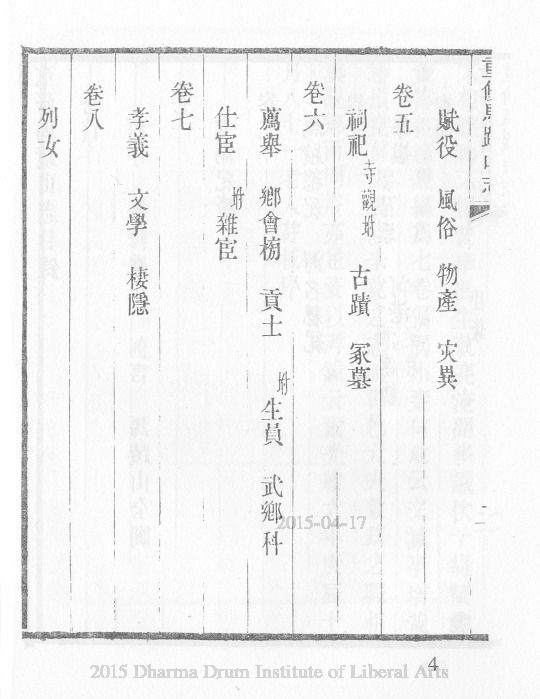 重修馬蹟山志
賦役 風俗 物產 灾異
卷五
祠祀 寺觀坿 古蹟 冢墓
卷六
薦舉 鄉會榜 貢士 坿生員 武鄉科
仕宦 坿雜宦
卷七
孝義 文學 棲隱
卷八
列女
二
4
2015-04-17
2015 Dharma Drum Institute of Liberal Arts